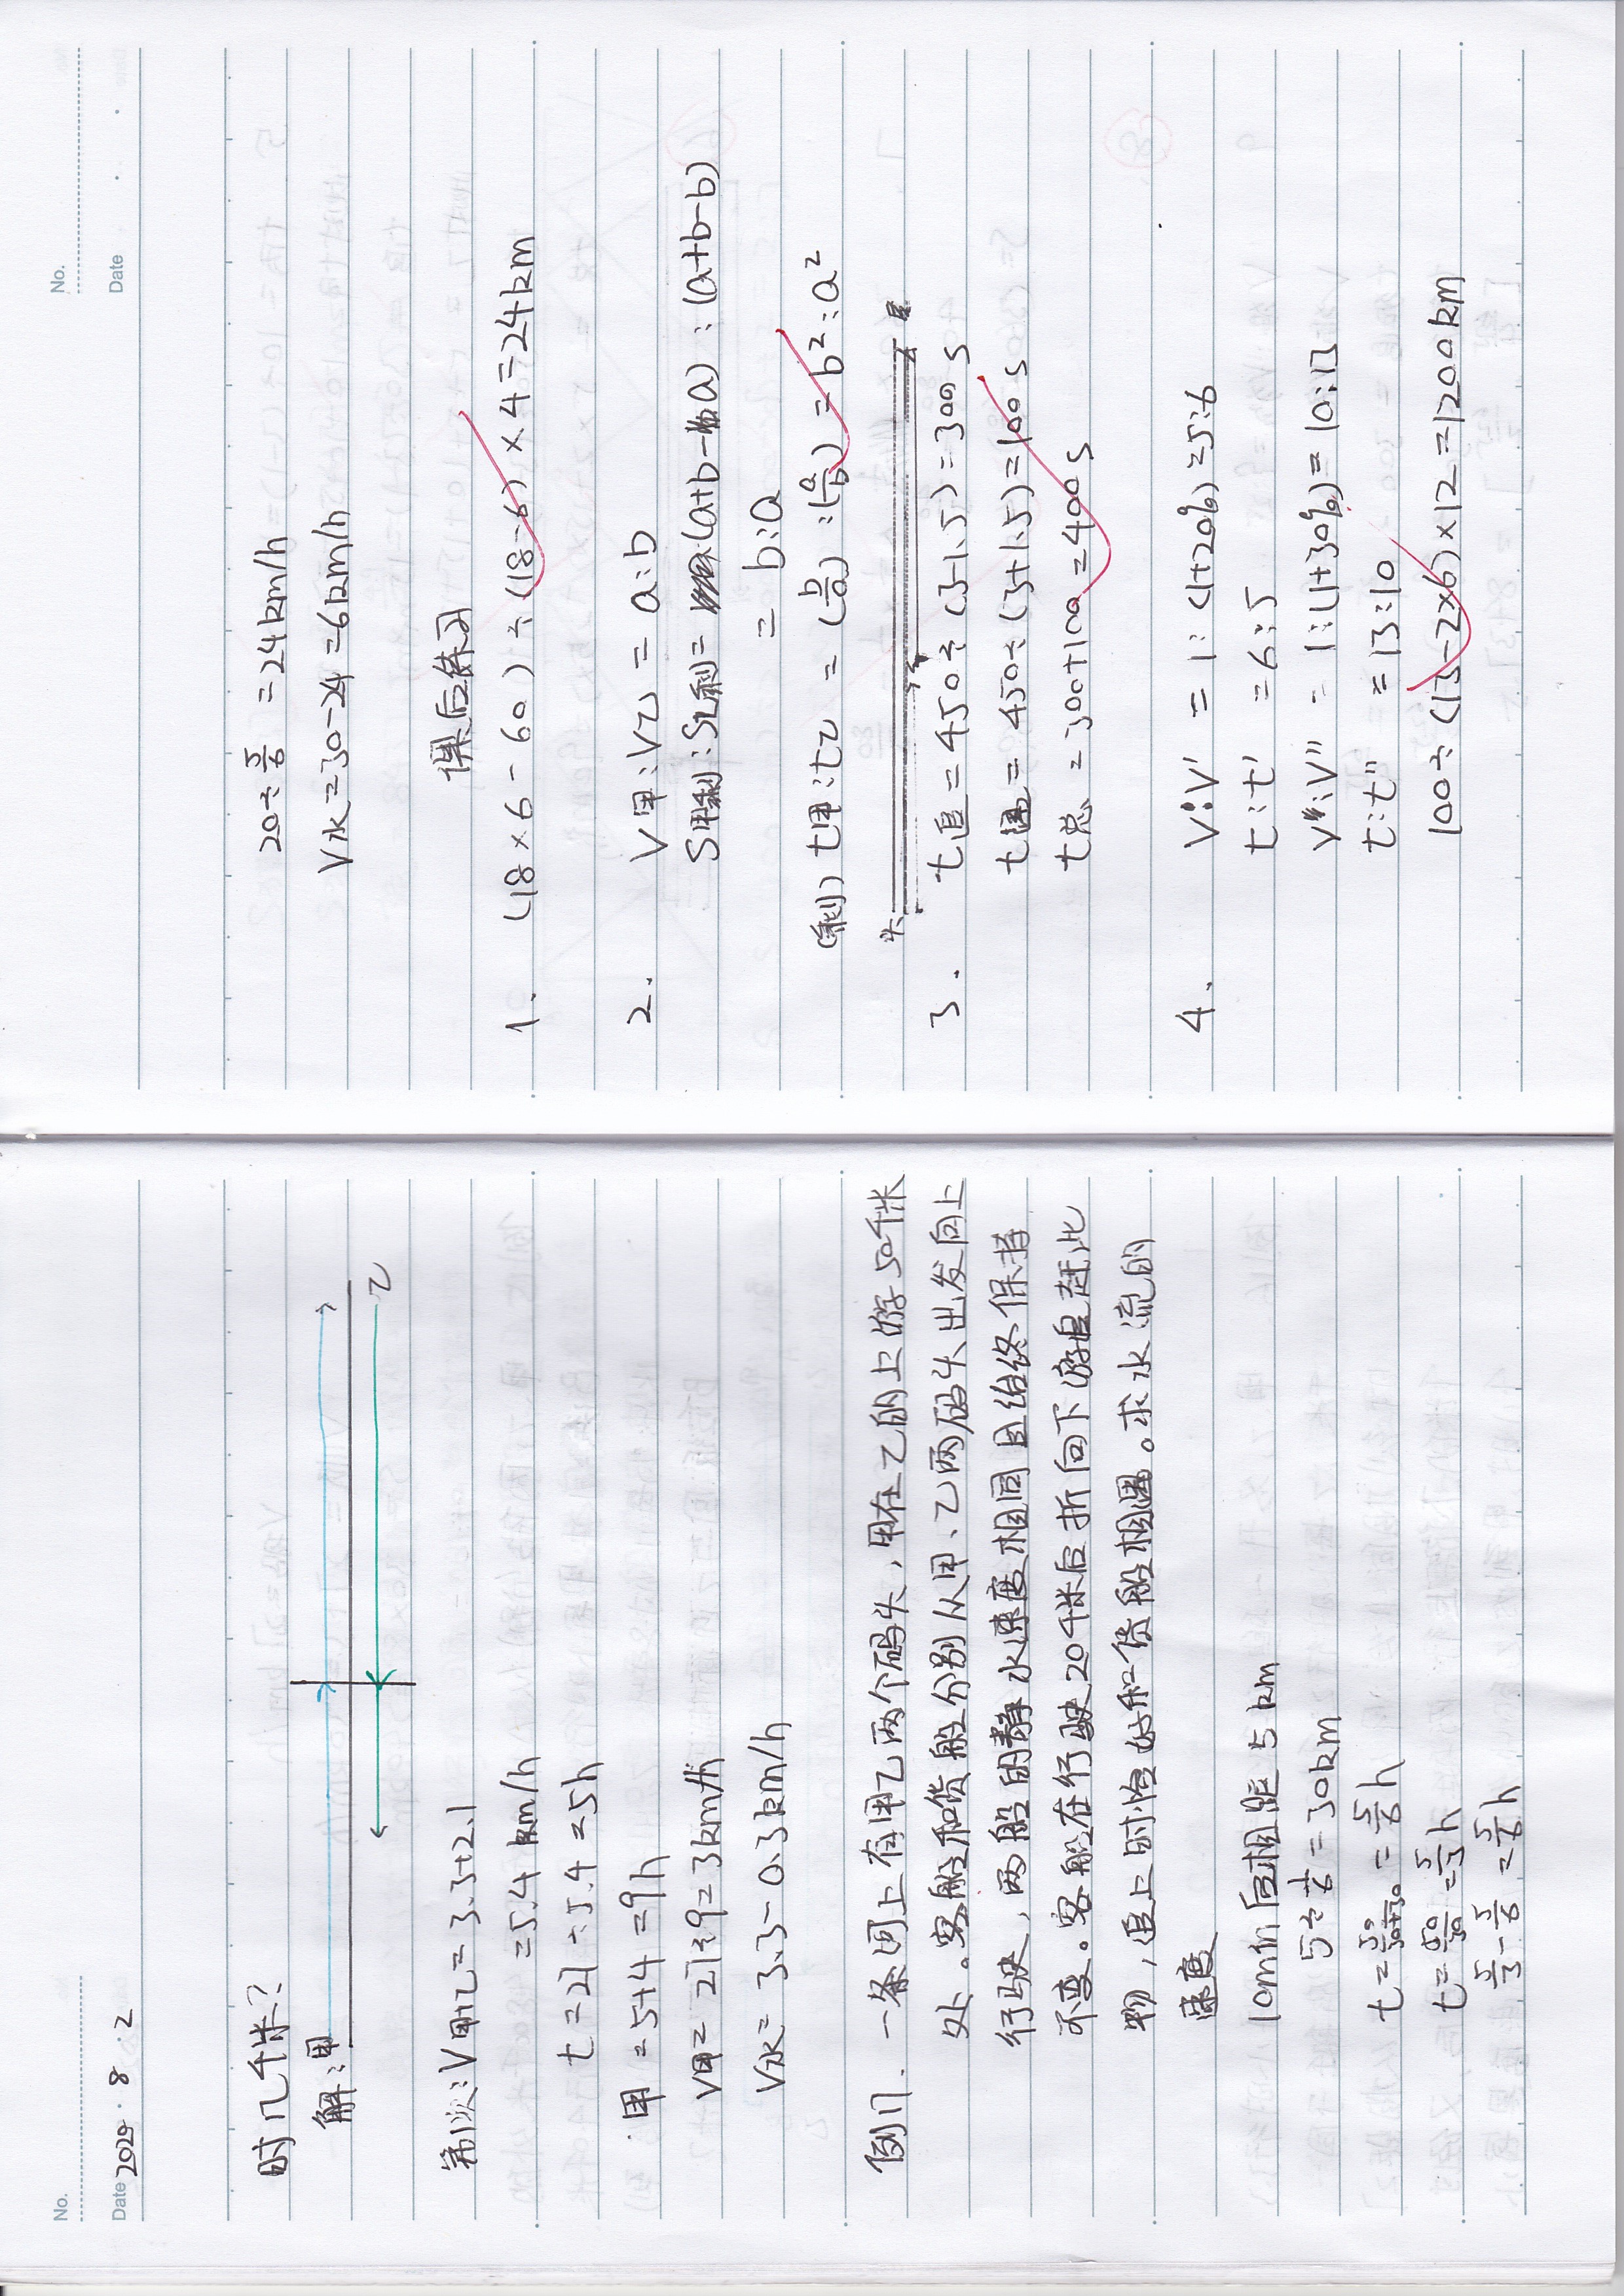 No.
Date 2020 . 8 . 2
时几千米?
解:甲
乙
第1次:V甲+乙=3.3+2.1
=5.4 km/h
t=27÷5.4=5h
甲=5+4=9h
V甲=27÷9=3km/h
V水=3.3-0.3km/h
例17. 一条河上有甲乙两个码头,甲在乙的上游50千米
处。客船和货船分别从甲、乙两码头出发向上
行驶,两船的静水速度相同且始终保持
不变。客船在行驶20千米后折向下游追赶此
物,追上时恰好和货船相遇。求水流的
速度
10min后相距5km
5÷1/6=30km
t=50/(30+30)=5/6h
t=50/30=5/3h
5/3-5/6=5/6h
No.
Date . .
20÷5/6=24km/h
V水=30-24=6km/h
课后练习
1. (18×6-60)÷(18-6)×4=24km
2. V甲:V乙=a:b
S甲剩:S乙剩=(a+b-a):(a+b-b)
=b:a
(剩)t甲:t乙=(b/a):(a/b)=b²:a²
头 尾
3. t追=450÷(3-1.5)=300s
t遇=450÷(3+1.5)=100s
t总=300+100=400s
4. V:V'=1:(1+20%)=5:6
t:t'=6:5
V:V''=1:(1+30%)=10:13
t:t''=13:10
100÷(13-2×6)×12=1200km